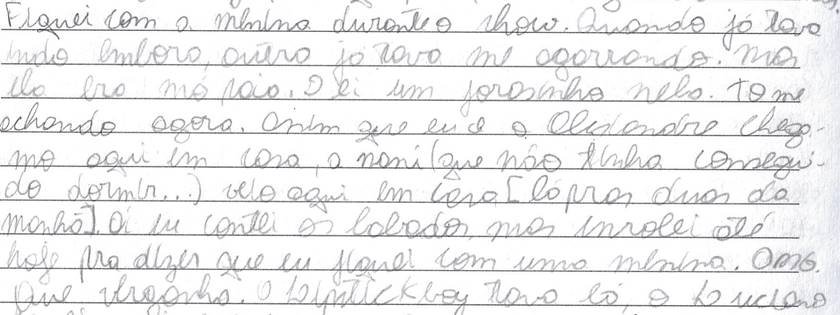 Fiquei com a menina durante o show. Quando já tava
indo embora, outra já tava me agarrando. Mas
ela era mó raio. Dei um forasinho nela. Tô me
achando agora. Assim que eu e o Alexandre chega-
mo aqui em casa, a nani (que não tinha consegui-
do dormir...) veio aqui em casa [lá pras duas da
manhã]. Aí eu contei as baladas, mas enrolei até
hoje pra dizer que eu fiquei com uma menina. Oms.
Que vergonha. O Lipstickboy tava lá, o Luciano